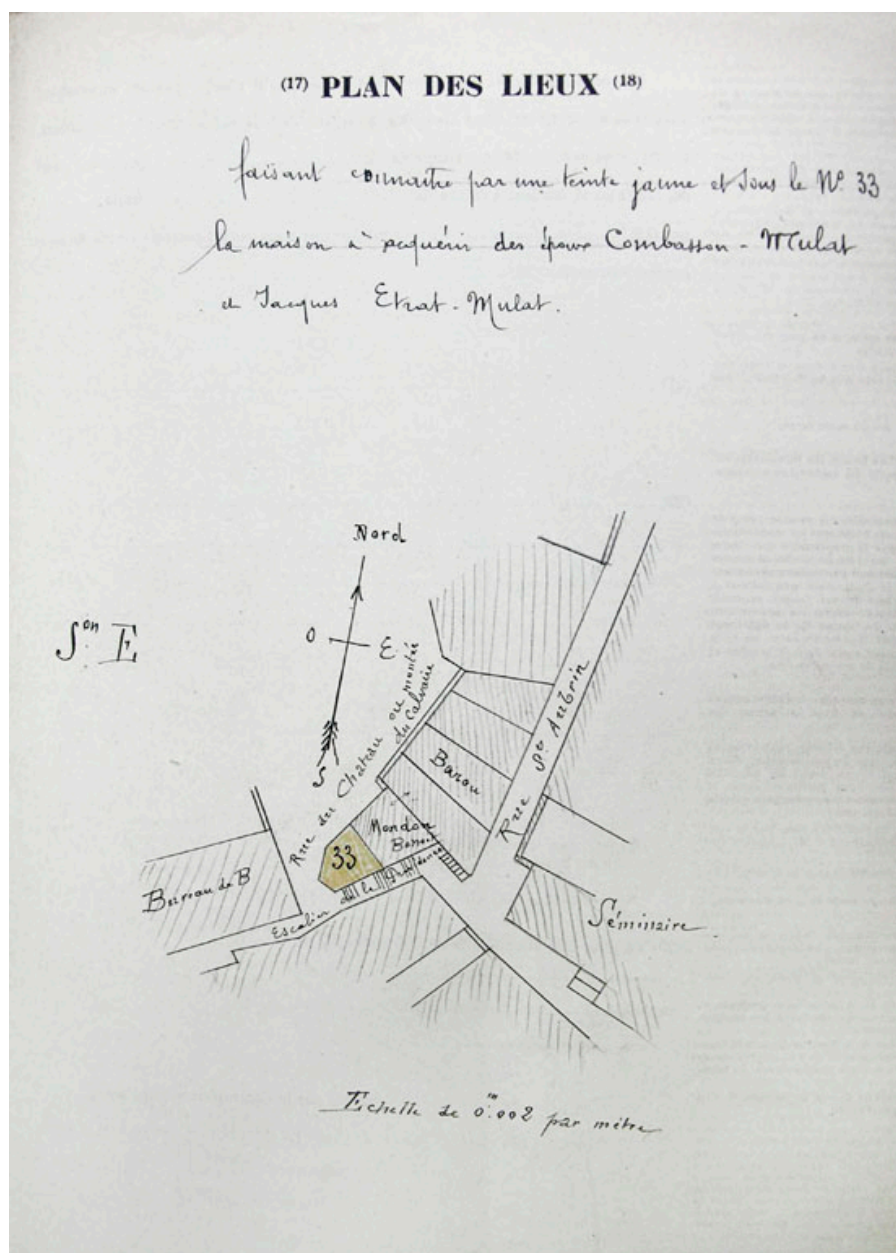 (17) PLAN DES LIEUX (18)
faisant connaitre par une teinte jaune et sous le N° 33
la maison à acquérir des époux Combasson - Mulat
et Jacques Etrat - Mulat.
Nord
O
E
S
S.on E
Rue du Chateau ou montée
du Calvaire
Rue St Aubrin
Barou
Mondon
33
Bureau de B
Escalier de la
Séminaire
Echelle de 0m.002 par mètre